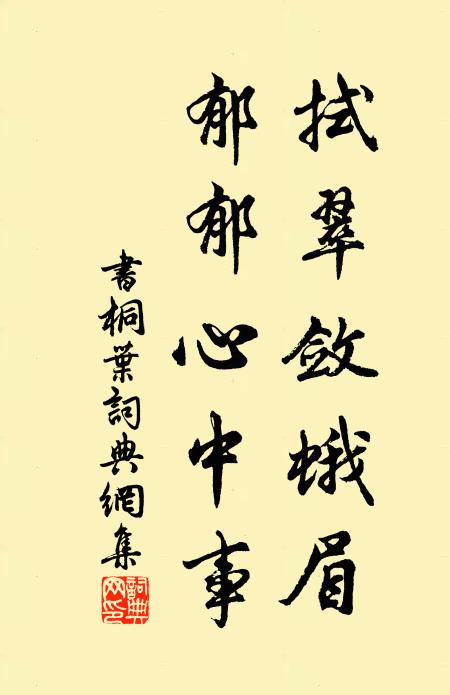 拭翠敛蛾眉
郁郁心中事
書桐葉詞典網集
詞典
网印